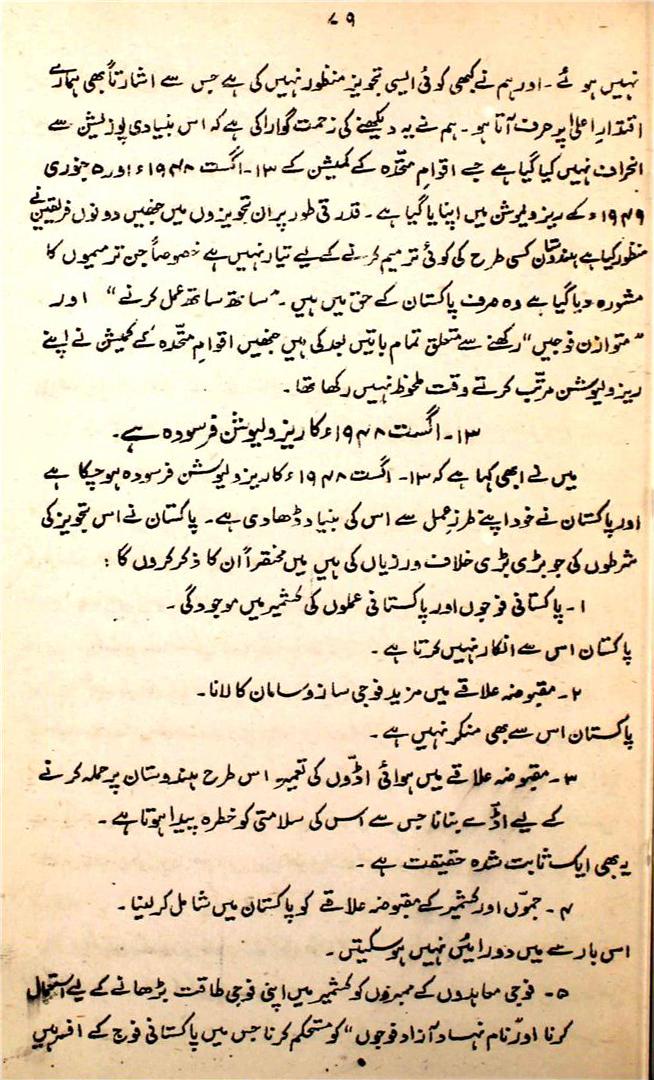 ۷۹
نہیں ہوئے۔ اور ہم نے کبھی کوئی ایسی تجویز منظور نہیں کی ہے جس سے اشارتاً بھی ہمارے
اقتدارِ اعلیٰ پر حرف آتا ہو۔ ہم نے یہ دیکھنے کی زحمت گوارا کی ہے کہ اس بنیادی پوزیشن سے
انحراف نہیں کیا گیا ہے جسے اقوامِ متحّدہ کے کمیشن کے ۱۳۔ اگست ۱۹۴۸ء اور ۵ جنوری
۱۹۴۹ء کے ریزولیوشن میں اپنایا گیا ہے۔ قدرتی طور پر ان تجویزوں میں جنھیں دونوں فریقین نے
منظور کیا ہے ہندوستان کسی طرح کی کوئی ترمیم کرنے کے لیے تیار نہیں ہے خصوصاً جن ترمیموں کا
مشورہ دیا گیا ہے وہ صرف پاکستان کے حق میں ہیں۔ "ساتھ ساتھ عمل کرنے" اور
"متوازن فوجیں" رکھنے سے متعلق تمام باتیں بعد کی ہیں جنھیں اقوامِ متحّدہ کے کمیشن نے اپنے
ریزولیوشن مرتّب کرتے وقت ملحوظ نہیں رکھا تھا۔
۱۳۔ اگست ۱۹۴۸ء کا ریزولیوشن فرسودہ ہے۔
میں نے ابھی کہا ہے کہ ۱۳۔ اگست ۱۹۴۸ء کا ریزولیوشن فرسودہ ہو چکا ہے
اور پاکستان نے خود اپنے طرزِ عمل سے اس کی بنیاد ڈھا دی ہے۔ پاکستان نے اس تجویز کی
شرطوں کی جو بڑی بڑی خلاف ورزیاں کی ہیں میں مختصراً ان کا ذکر کروں گا:
۱۔ پاکستانی فوجوں اور پاکستانی عملوں کی کشمیر میں موجودگی۔
پاکستان اس سے انکار نہیں کرتا ہے۔
۲۔ مقبوضہ علاقے میں مزید فوجی ساز و سامان کا لانا۔
پاکستان اس سے بھی منکر نہیں ہے۔
۳۔ مقبوضہ علاقے میں ہوائی اڈّوں کی تعمیر اس طرح ہندوستان پر حملہ کرنے
کے لیے اڈّے بنانا جس سے اس کی سلامتی کو خطرہ پیدا ہوتا ہے۔
یہ بھی ایک ثابت شدہ حقیقت ہے۔
۴۔ جموّں اور کشمیر کے مقبوضہ علاقے کو پاکستان میں شامل کر لینا۔
اس بارے میں دو رائیں نہیں ہو سکتیں۔
۵۔ فوجی معاہدوں کے ممبروں کو کشمیر میں اپنی فوجی طاقت بڑھانے کے لیے استعمال
کرنا اور نام نہاد "آزاد فوجوں" کو مستحکم کرنا جس میں پاکستانی فوج کے افسر ہیں